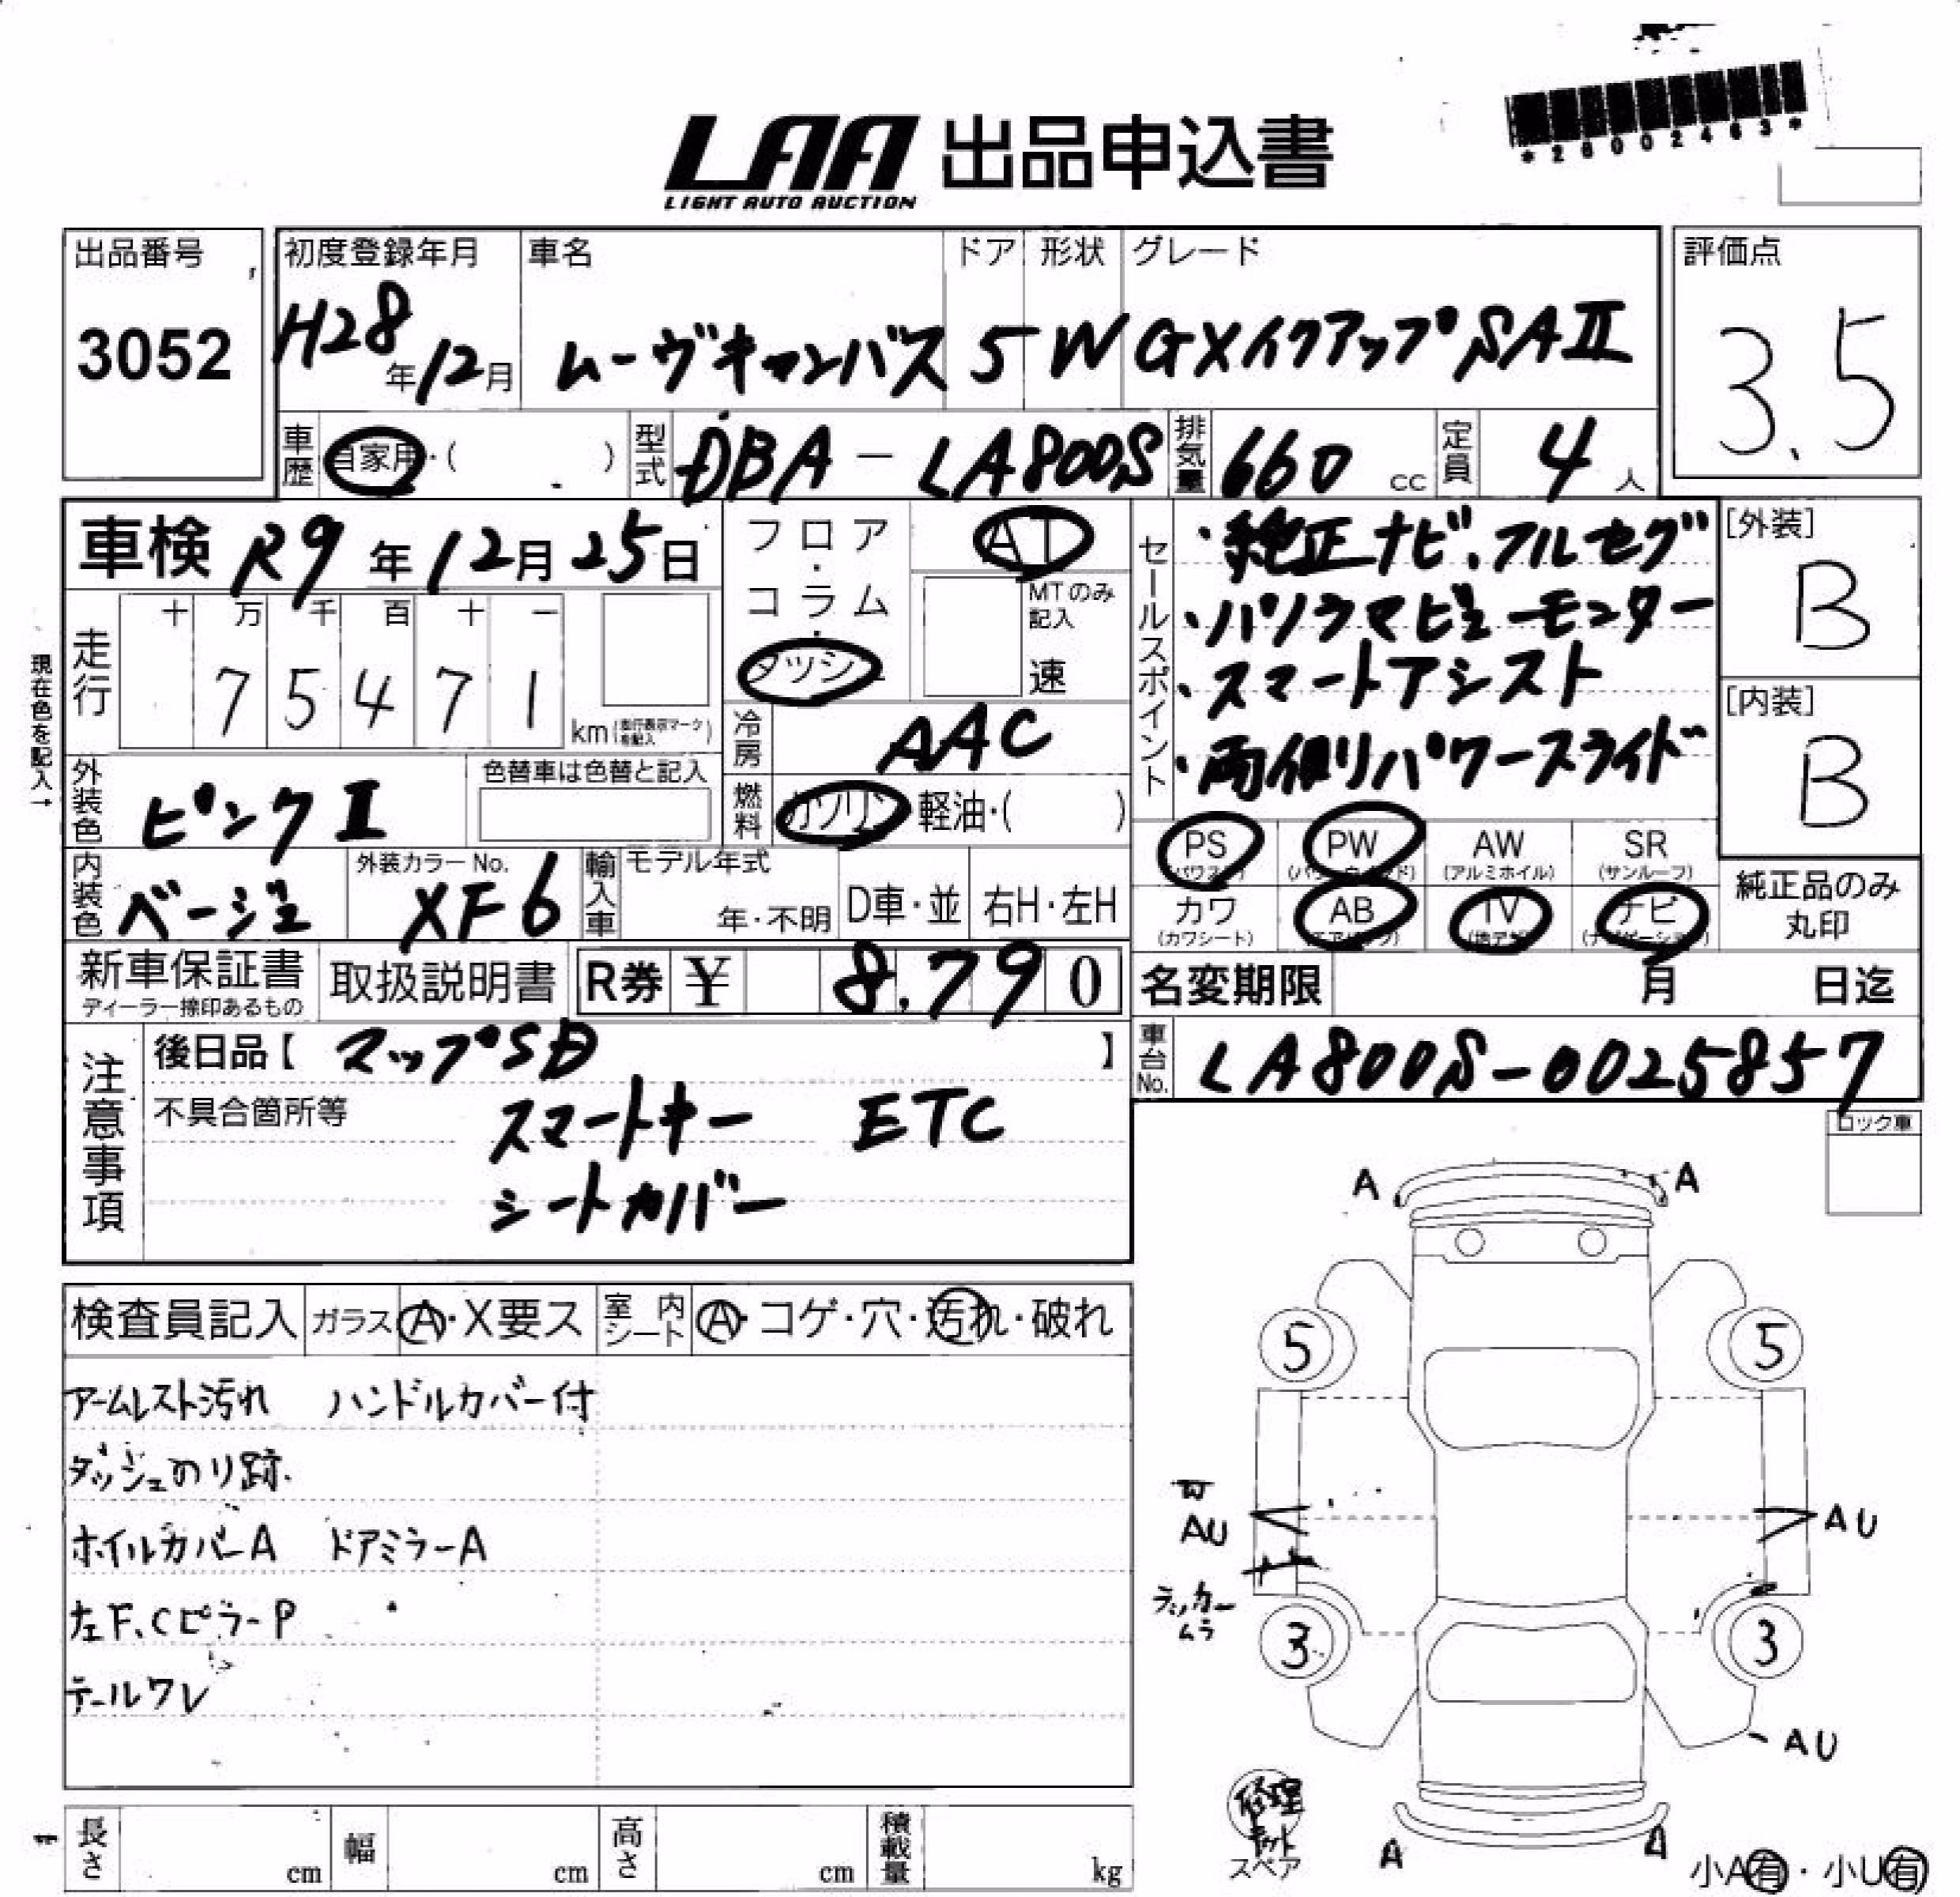 *26002463*
LAA 出品申込書
LIGHT AUTO AUCTION
出品番号 3052
初度登録年月 H28年12月
車名 ムーヴキャンバス
ドア 5
形状 W
グレード GXメイクアップSAⅡ
評価点 3.5
車歴 自家用・( )
型式 DBA-LA800S
排気量 660 cc
定員 4人
車検 R9年12月25日
フロア・コラム・ダッシュ
AT
MTのみ記入
速
セールスポイント
・純正ナビ、フルセグ
・パノラマビューモニター
・スマートアシスト
・両側パワースライド
[外装] B
[内装] B
現在色を記入→
走行 十万千百十一
75471 km (走行表示マークを記入)
冷房 AAC
外装色 ピンクⅡ
色替車は色替と記入
燃料 ガソリン・軽油・( )
PS (パワステ) PW (パワーウィンド) AW (アルミホイル) SR (サンルーフ)
カワ (カワシート) AB (エアバック) TV (地デジ) ナビ (ナビゲーション)
純正品のみ丸印
内装色 ベージュ
外装カラーNo. XF6
輸入車 モデル年式 年・不明 D車・並 右H・左H
新車保証書 ディーラー捺印あるもの
取扱説明書
R券 ¥ 8,790
名変期限 月 日迄
車台No. LA800S-0025857
注意事項
後日品【 マップSD 】
不具合箇所等
スマートキー ETC
シートカバー
ロック車
検査員記入 ガラス A・X要ス 室内シート A・コゲ・穴・汚れ・破れ
アームレスト汚れ ハンドルカバー付
ダッシュのり跡.
ホイルカバーA ドアミラーA
左F、CピラーP
テールワレ
A A
5 5
W
AU AU
ラッカームラ
3 3
AU
修理キット
スペア
A A
小A有・小U有
長さ cm 幅 cm 高さ cm 積載量 kg